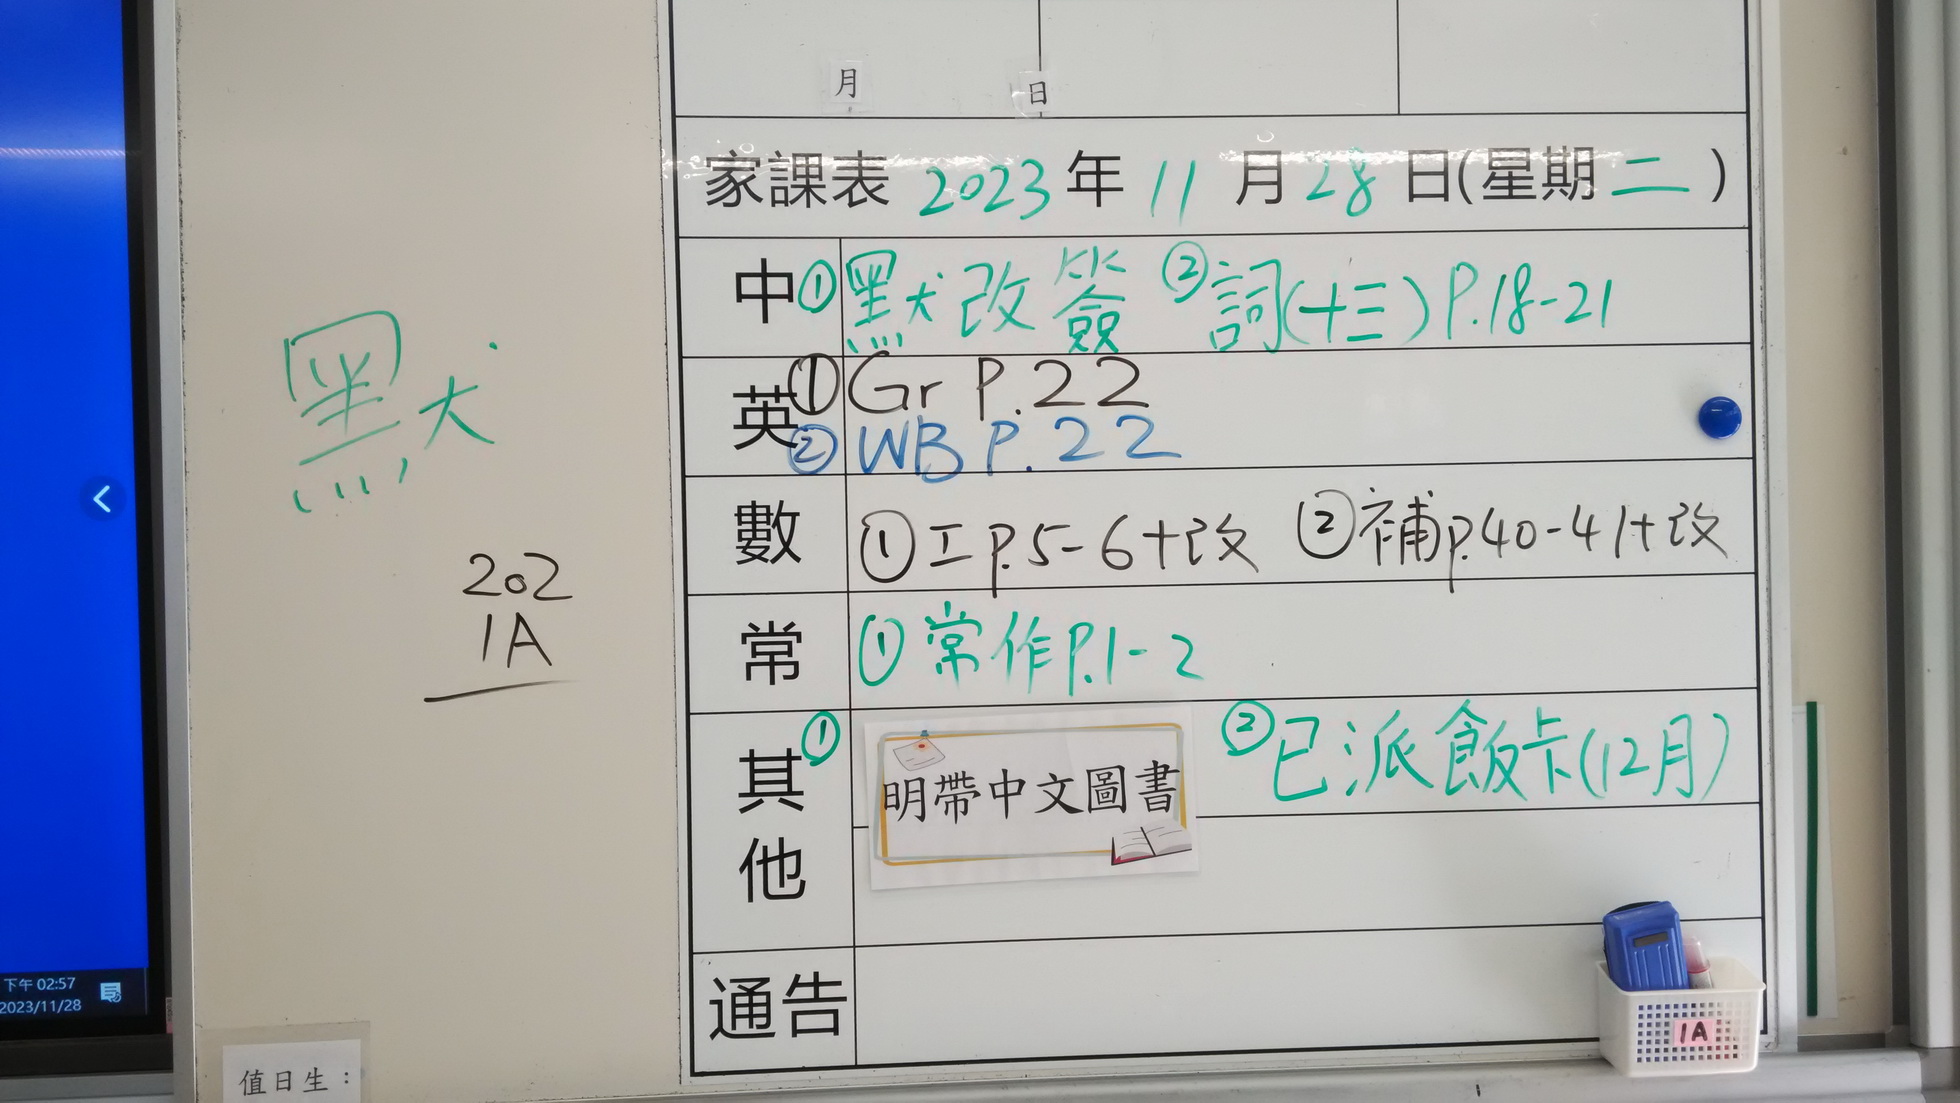 月 日
家課表 2023 年 11 月 28 日(星期 二 )
中 ① 默改簽 ② 詞(十三) P.18-21
英 ① Gr P.22
② WB P.22
數 ① 工 P.5-6+改 ② 補 P.40-41+改
常 ① 常作 P.1-2
其他 ① 明帶中文圖書 ② 已派飯卡(12月)
通告
默
202
1A
1A
下午 02:57
2023/11/28
值日生：